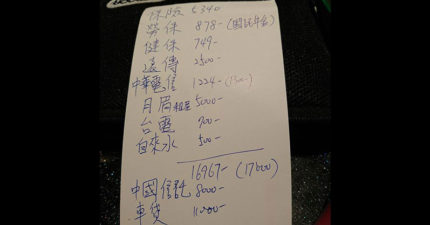 保險 6340
勞保 878-(國民年金)
健保 749-
遠傳 2500-
中華電信 1224-(1300-)
月眉租屋 5000-
台電 900-
自來水 500-
16967-(17000)
中國信託 8000-
車貸 11000-